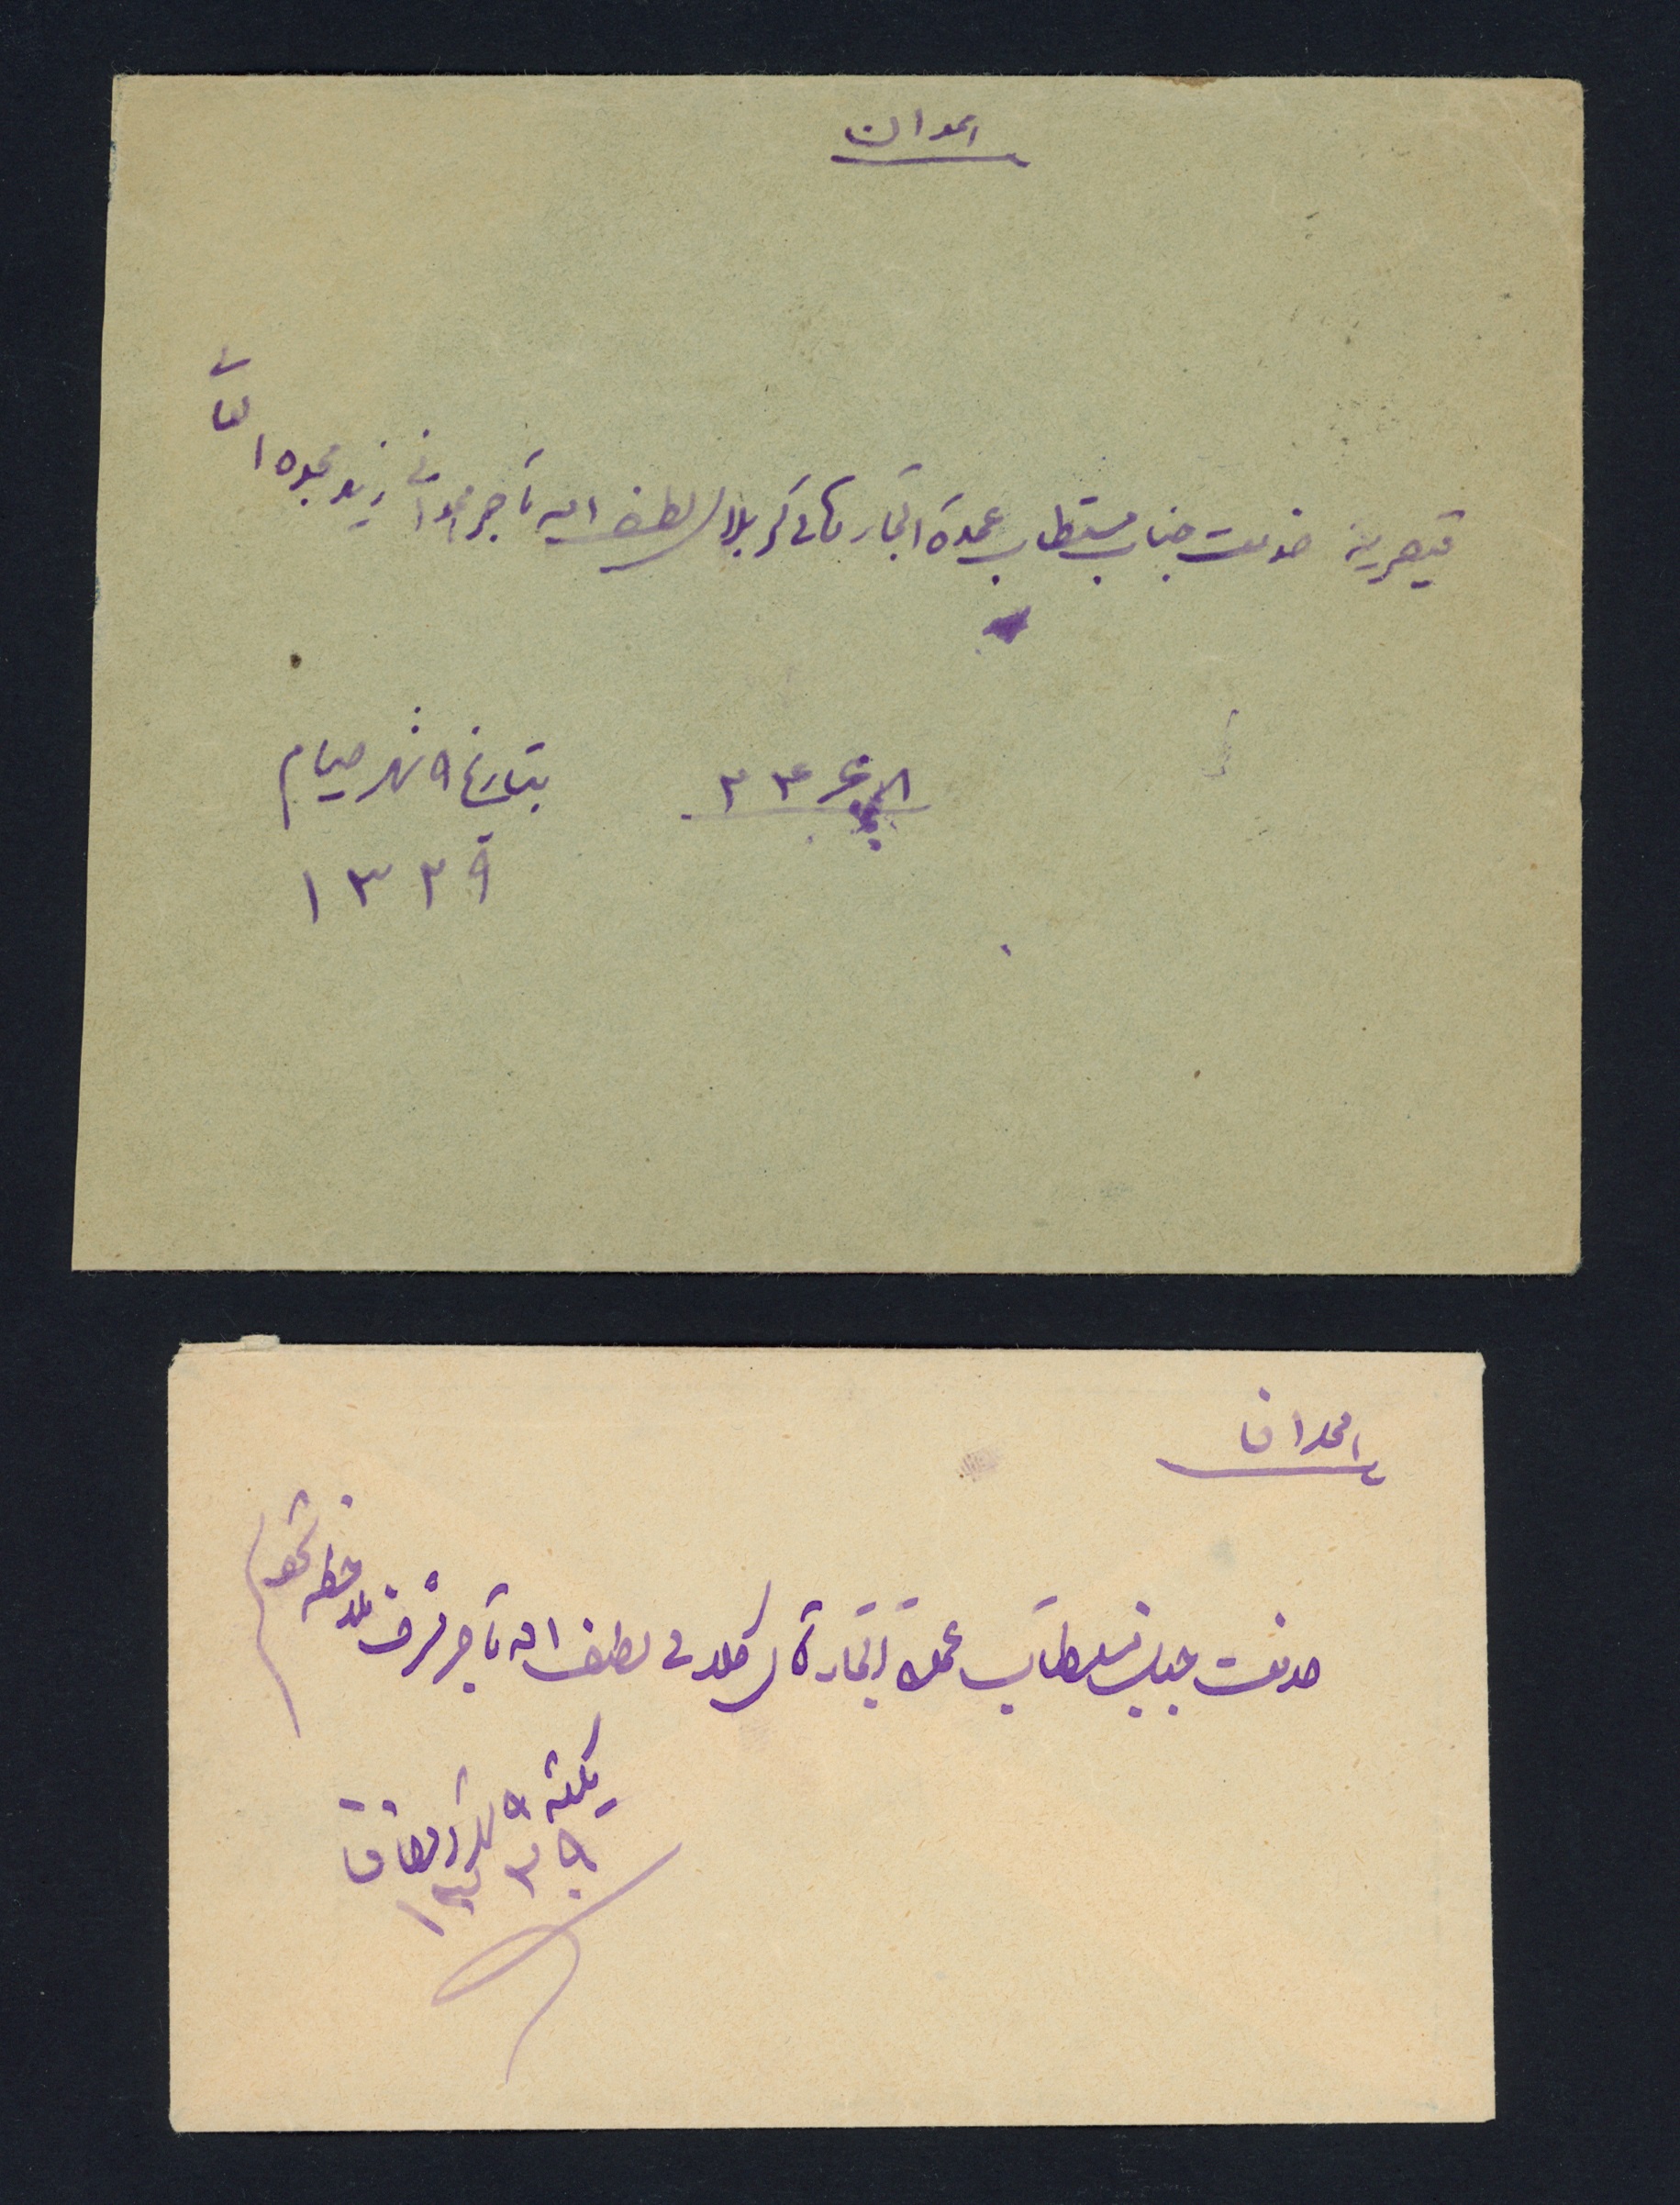 همدان
قیصریه خدمت جناب مستطاب عمدة التجار آقای کربلائی لطف الله تاجر همدانی زید مجده العالی
بتاریخ ۹ شهر صیام
۱۳۲۹
همدان
خدمت جناب مستطاب عمدة التجار آقای کربلائی لطف الله تاجر مشرف ملاحظه شود
۹ شهر رمضان
۱۳۲۹